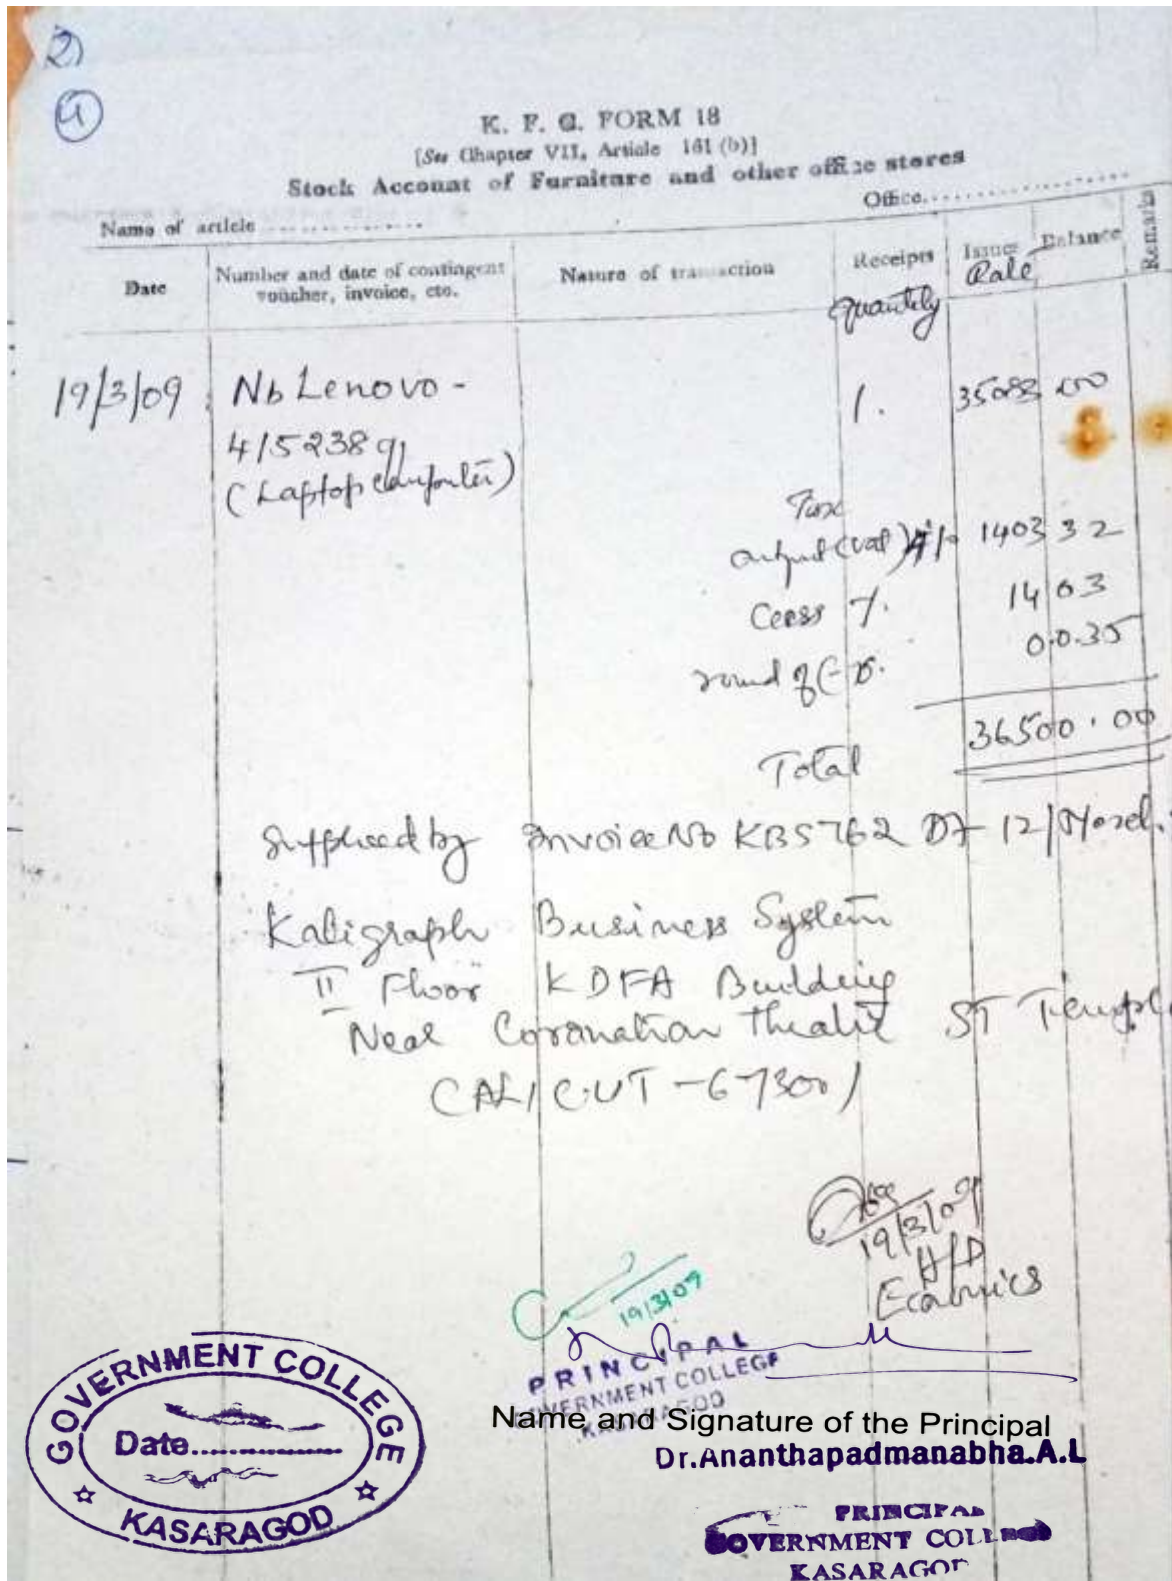 2)
4
K. F. C. FORM 18
[See Chapter VII, Article 161 (b)]
Stock Account of Furniture and other office stores
Name of article ............... Office...............
Date Number and date of contingent voucher, invoice, etc. Nature of transaction Receipts Issues Balance Remarks
Quantity Rate
19/3/09 Nb Lenovo - 1. 35083 00
415238q
(Laptop Computer)
Tax
output (vat) 4% 1403 32
Cess %. 14 03
round of (-) 0.0.35
Total 36500.00
Supplied by Invoice No KBS762 Dt 12/March
Kaligraph Business System
II Floor KDFA Building
Near Coronation Theatre ST Temple
CALICUT - 673001
19/3/09
H/D
Economics
19/3/09
PRINCIPAL
GOVERNMENT COLLEGE
KASARAGOD
Name and Signature of the Principal
Dr.Ananthapadmanabha.A.L
GOVERNMENT COLLEGE
Date...............
KASARAGOD
PRINCIPAL
GOVERNMENT COLLEGE
KASARAGOD